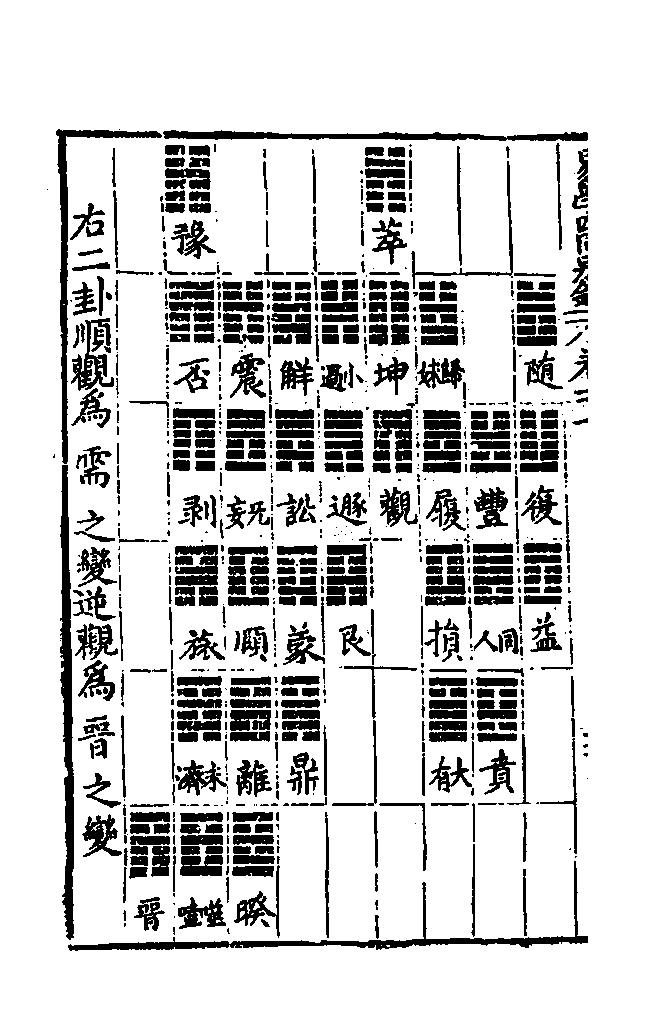 随 復 益
豐 同人 賁
歸妹 履 損 大有
萃 坤 觀
小過 遯 艮
解 訟 蒙 鼎
震 无妄 頤 離 睽
豫 否 剥 旅 未濟 噬嗑
晉
右二卦順觀為需之變逆觀為晉之變